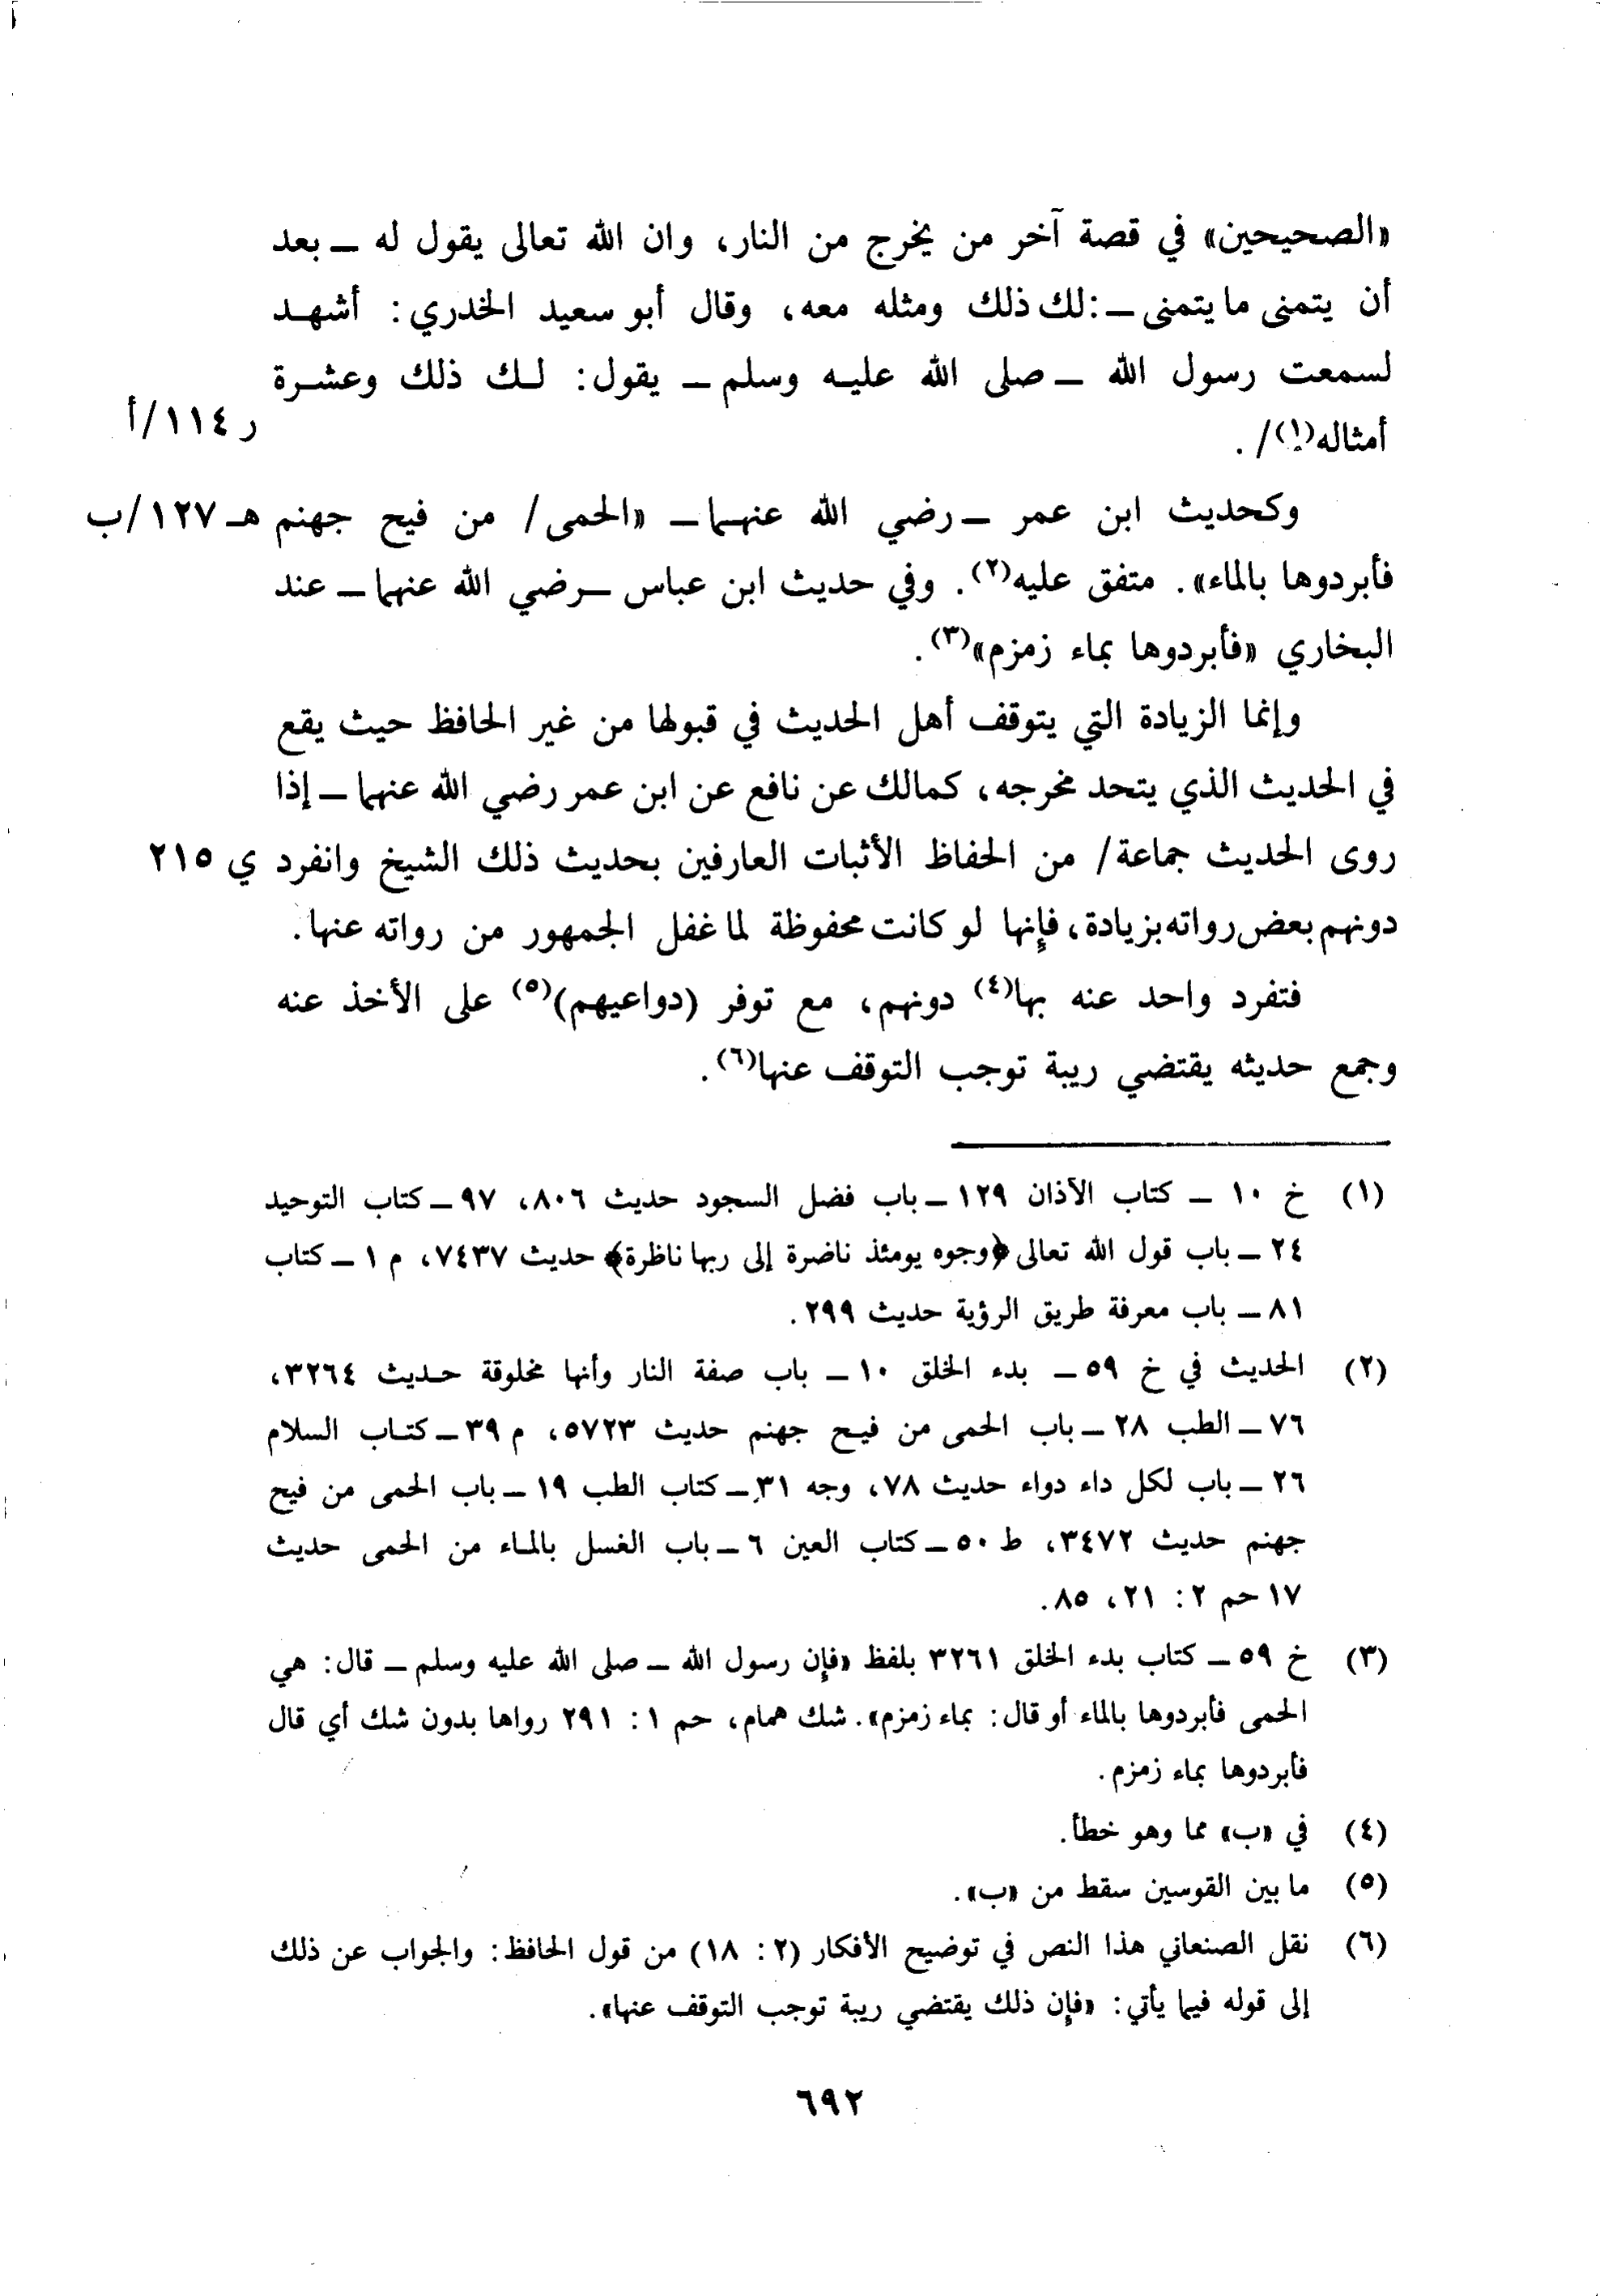 «الصحيحين» في قصة آخر من يخرج من النار، وان الله تعالى يقول له ــ بعد
أن يتمنى ما يتمنى ــ: لك ذلك ومثله معه، وقال أبو سعيد الخدري: أشهد
لسمعت رسول الله ــ صلى الله عليه وسلم ــ يقول: لك ذلك وعشرة
أمثاله(١)/. ر ١١٤/أ
وكحديث ابن عمر ــ رضي الله عنهما ــ «الحمى/ من فيح جهنم هـ ١٢٧/ب
فأبردوها بالماء». متفق عليه(٢). وفي حديث ابن عباس ــ رضي الله عنهما ــ عند
البخاري «فأبردوها بماء زمزم»(٣).
وإنما الزيادة التي يتوقف أهل الحديث في قبولها من غير الحافظ حيث يقع
في الحديث الذي يتحد مخرجه، كمالك عن نافع عن ابن عمر رضي الله عنهما ــ إذا
روى الحديث جماعة/ من الحفاظ الأثبات العارفين بحديث ذلك الشيخ وانفرد ي ٢١٥
دونهم بعض رواته بزيادة، فإنها لو كانت محفوظة لما غفل الجمهور من رواته عنها.
فتفرد واحد عنه بها(٤) دونهم، مع توفر (دواعيهم)(٥) على الأخذ عنه
وجمع حديثه يقتضي ريبة توجب التوقف عنها(٦).
(١) خ ١٠ ــ كتاب الآذان ١٢٩ ــ باب فضل السجود حديث ٨٠٦، ٩٧ ــ كتاب التوحيد
٢٤ ــ باب قول الله تعالى ﴿وجوه يومئذ ناضرة إلى ربها ناظرة﴾ حديث ٧٤٣٧، م ١ ــ كتاب
٨١ ــ باب معرفة طريق الرؤية حديث ٢٩٩.
(٢) الحديث في خ ٥٩ ــ بدء الخلق ١٠ ــ باب صفة النار وأنها مخلوقة حديث ٣٢٦٤،
٧٦ ــ الطب ٢٨ ــ باب الحمى من فيح جهنم حديث ٥٧٢٣، م ٣٩ ــ كتاب السلام
٢٦ ــ باب لكل داء دواء حديث ٧٨، وجه ٣١ ــ كتاب الطب ١٩ ــ باب الحمى من فيح
جهنم حديث ٣٤٧٢، ط ٥٠ ــ كتاب العين ٦ ــ باب الغسل بالماء من الحمى حديث
١٧ حم ٢: ٢١، ٨٥.
(٣) خ ٥٩ ــ كتاب بدء الخلق ٣٢٦١ بلفظ «فإن رسول الله ــ صلى الله عليه وسلم ــ قال: هي
الحمى فأبردوها بالماء أو قال: بماء زمزم». شك همام، حم ١: ٢٩١ رواها بدون شك أي قال
فأبردوها بماء زمزم.
(٤) في «ب» مما وهو خطأ.
(٥) ما بين القوسين سقط من «ب».
(٦) نقل الصنعاني هذا النص في توضيح الأفكار (٢: ١٨) من قول الحافظ: والجواب عن ذلك
إلى قوله فيما يأتي: «فإن ذلك يقتضي ريبة توجب التوقف عنها».
٦٩٢